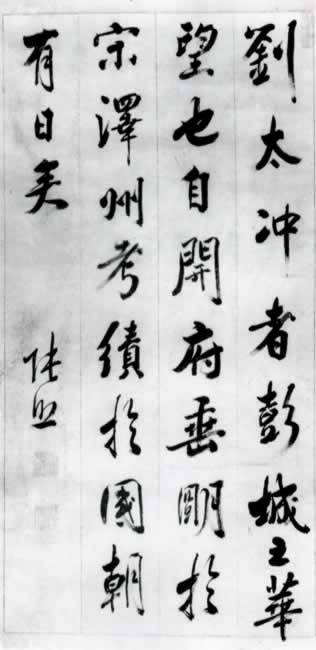 劉太冲者彭城之華
望也自開府垂明於
宋澤州考績於國朝
有日矣
張照